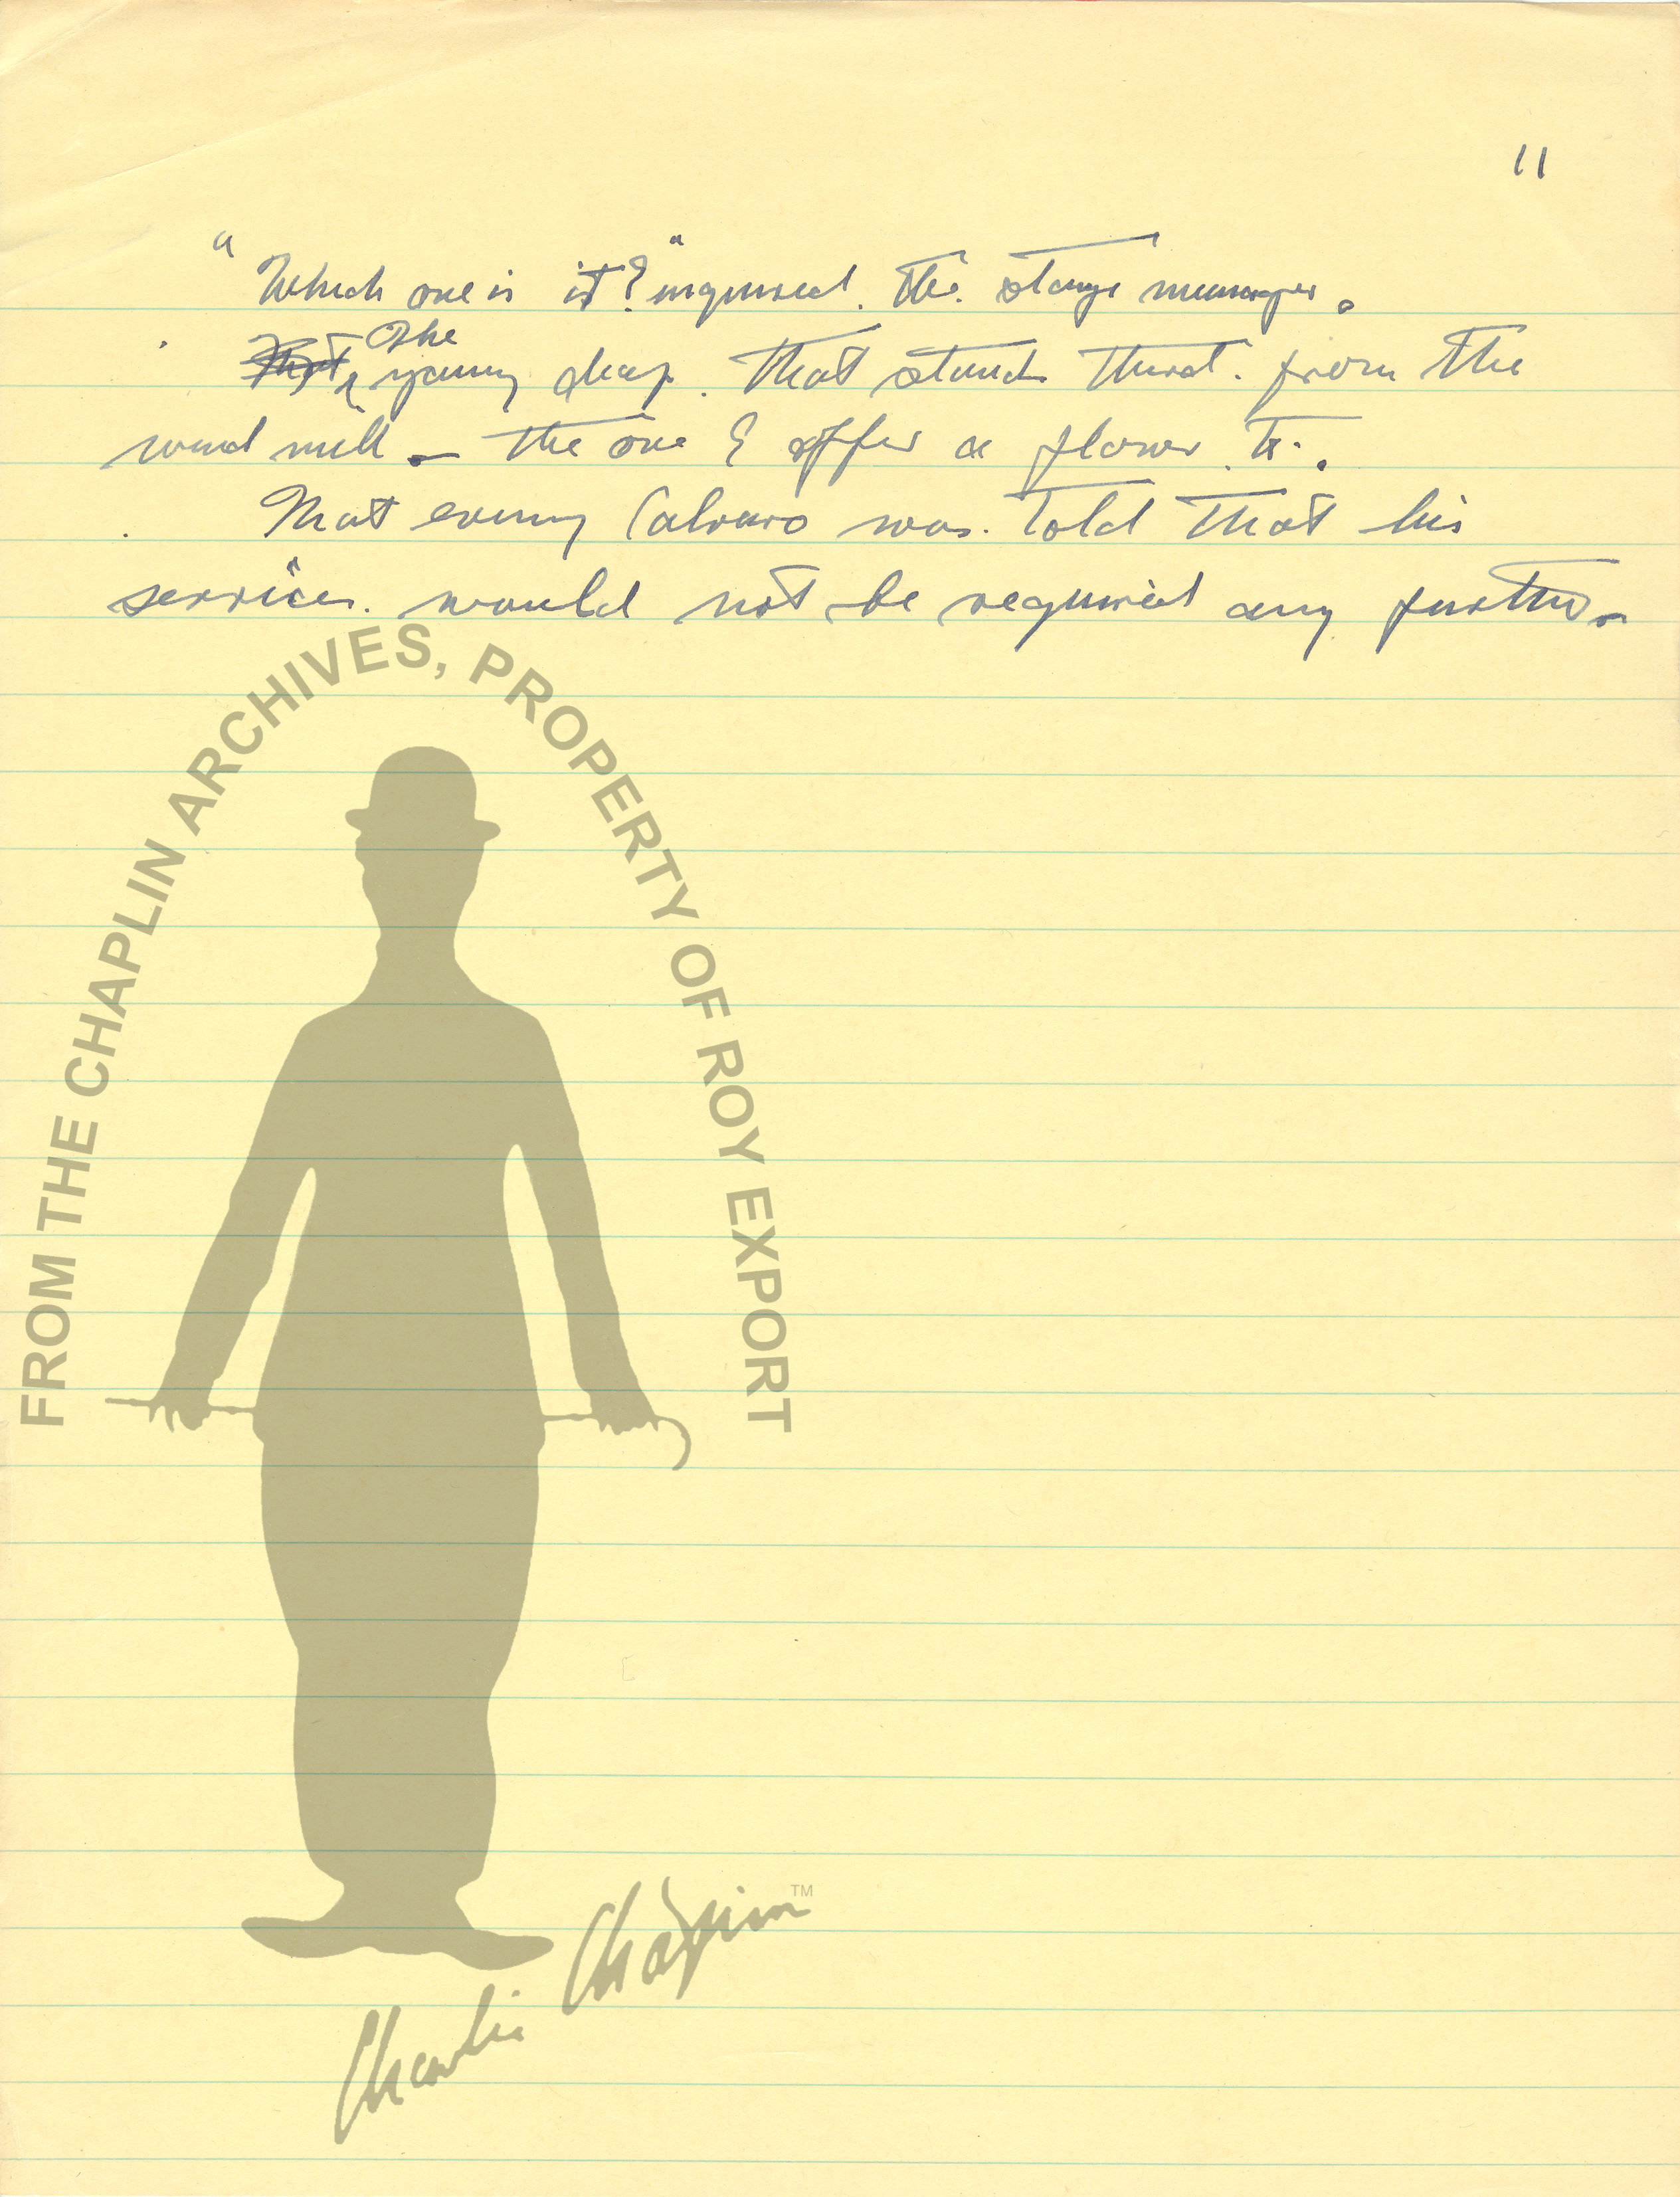 11
"Which one is it?" inquired the stage manager.
That The young chap that stands third from the
wind mill – the one I offer a flower to.
That evening Calvero was told that his
services would not be required any further.
FROM THE CHAPLIN ARCHIVES, PROPERTY OF ROY EXPORT
Charlie Chaplin TM